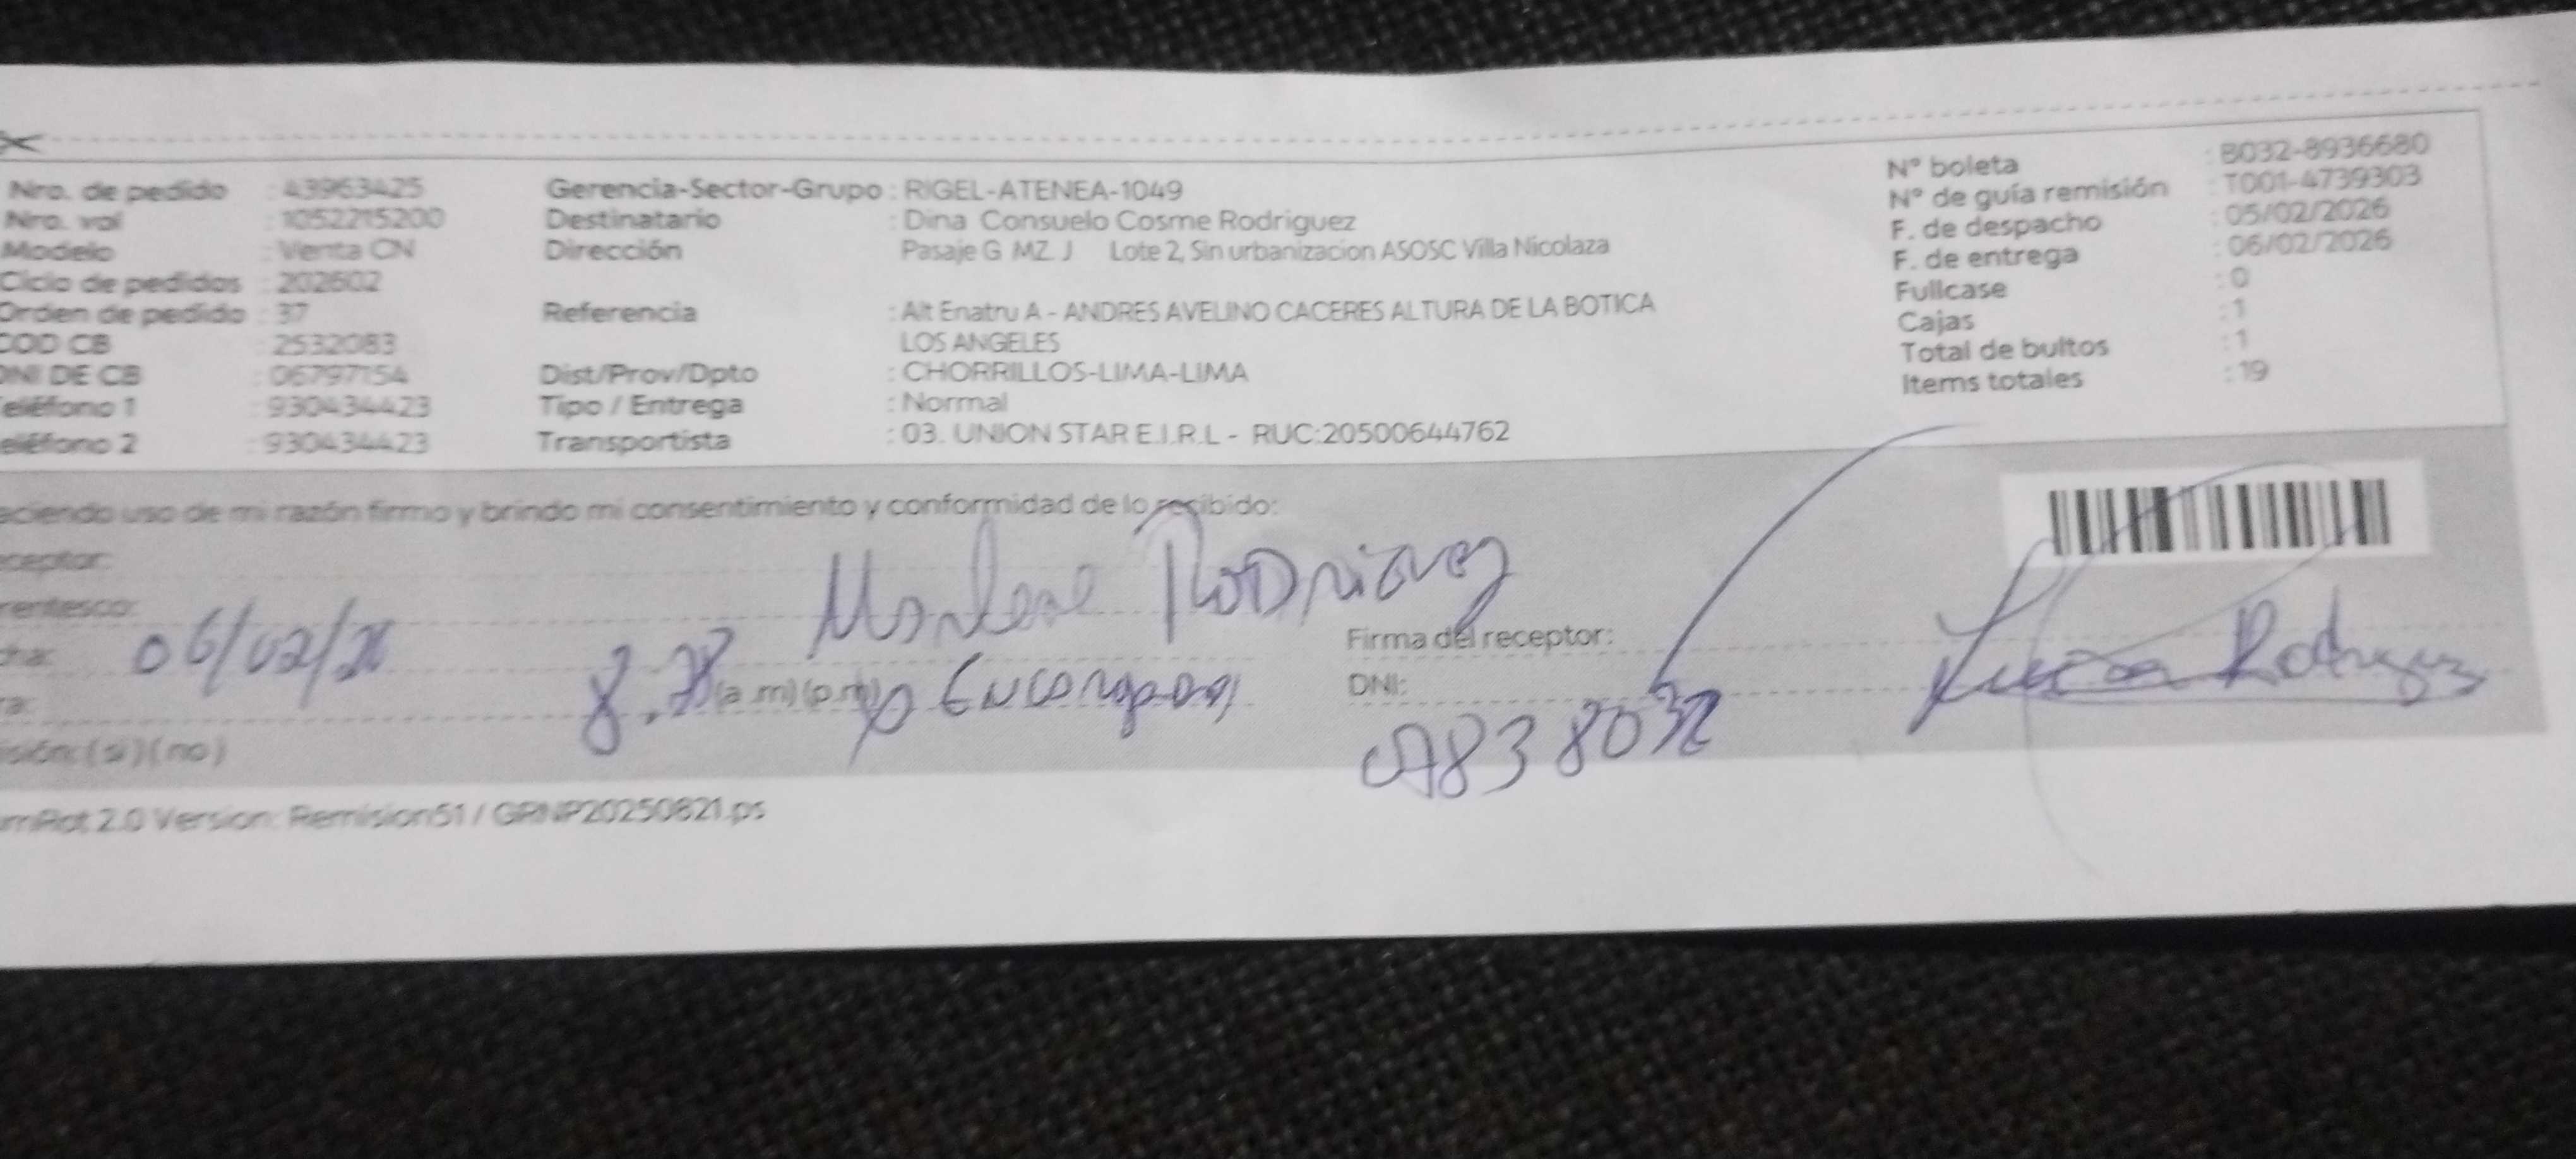 Nro. de pedido : 43963425
Nro. val : 1052215200
Modelo : Venta CN
Ciclo de pedidos : 202602
Orden de pedido : 37
COD CB : 2532083
DNI DE CB : 06797154
eléfono 1 : 930434423
eléfono 2 : 930434423
Gerencia-Sector-Grupo : RIGEL-ATENEA-1049
Destinatario : Dina Consuelo Cosme Rodriguez
Dirección Pasaje G MZ. J Lote 2, Sin urbanizacion ASOSC Villa Nicolaza
Referencia : Alt Enatru A - ANDRES AVELINO CACERES ALTURA DE LA BOTICA
LOS ANGELES
Dist/Prov/Dpto : CHORRILLOS-LIMA-LIMA
Tipo / Entrega : Normal
Transportista : 03. UNION STAR E.I.R.L - RUC:20500644762
N° boleta : B032-8936680
N° de guía remisión : T001-4739303
F. de despacho : 05/02/2026
F. de entrega : 06/02/2026
Fullcase : 0
Cajas : 1
Total de bultos : 1
Items totales : 19
aciendo uso de mi razón firmo y brindo mi consentimiento y conformidad de lo recibido:
ceptor:
rentesco:
Marlene Rodriguez
cha: 06/02/26
ra: (a.m)(p.m)
Firma del receptor:
DNI:
Rodriguez
isión: (si) (no)
Version: Remision51 / GRNP20250821.ps